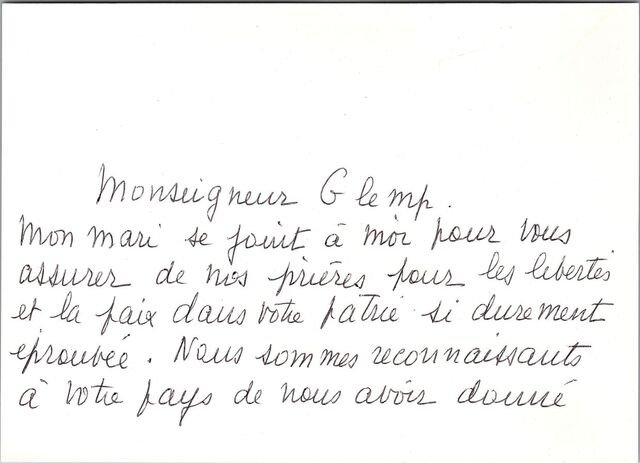 Monseigneur Glemp.
Mon mari se joint à moi pour vous
assurer de nos prières pour les libertés
et la paix dans votre patrie si durement
éprouvée. Nous sommes reconnaissants
à votre pays de nous avoir donné